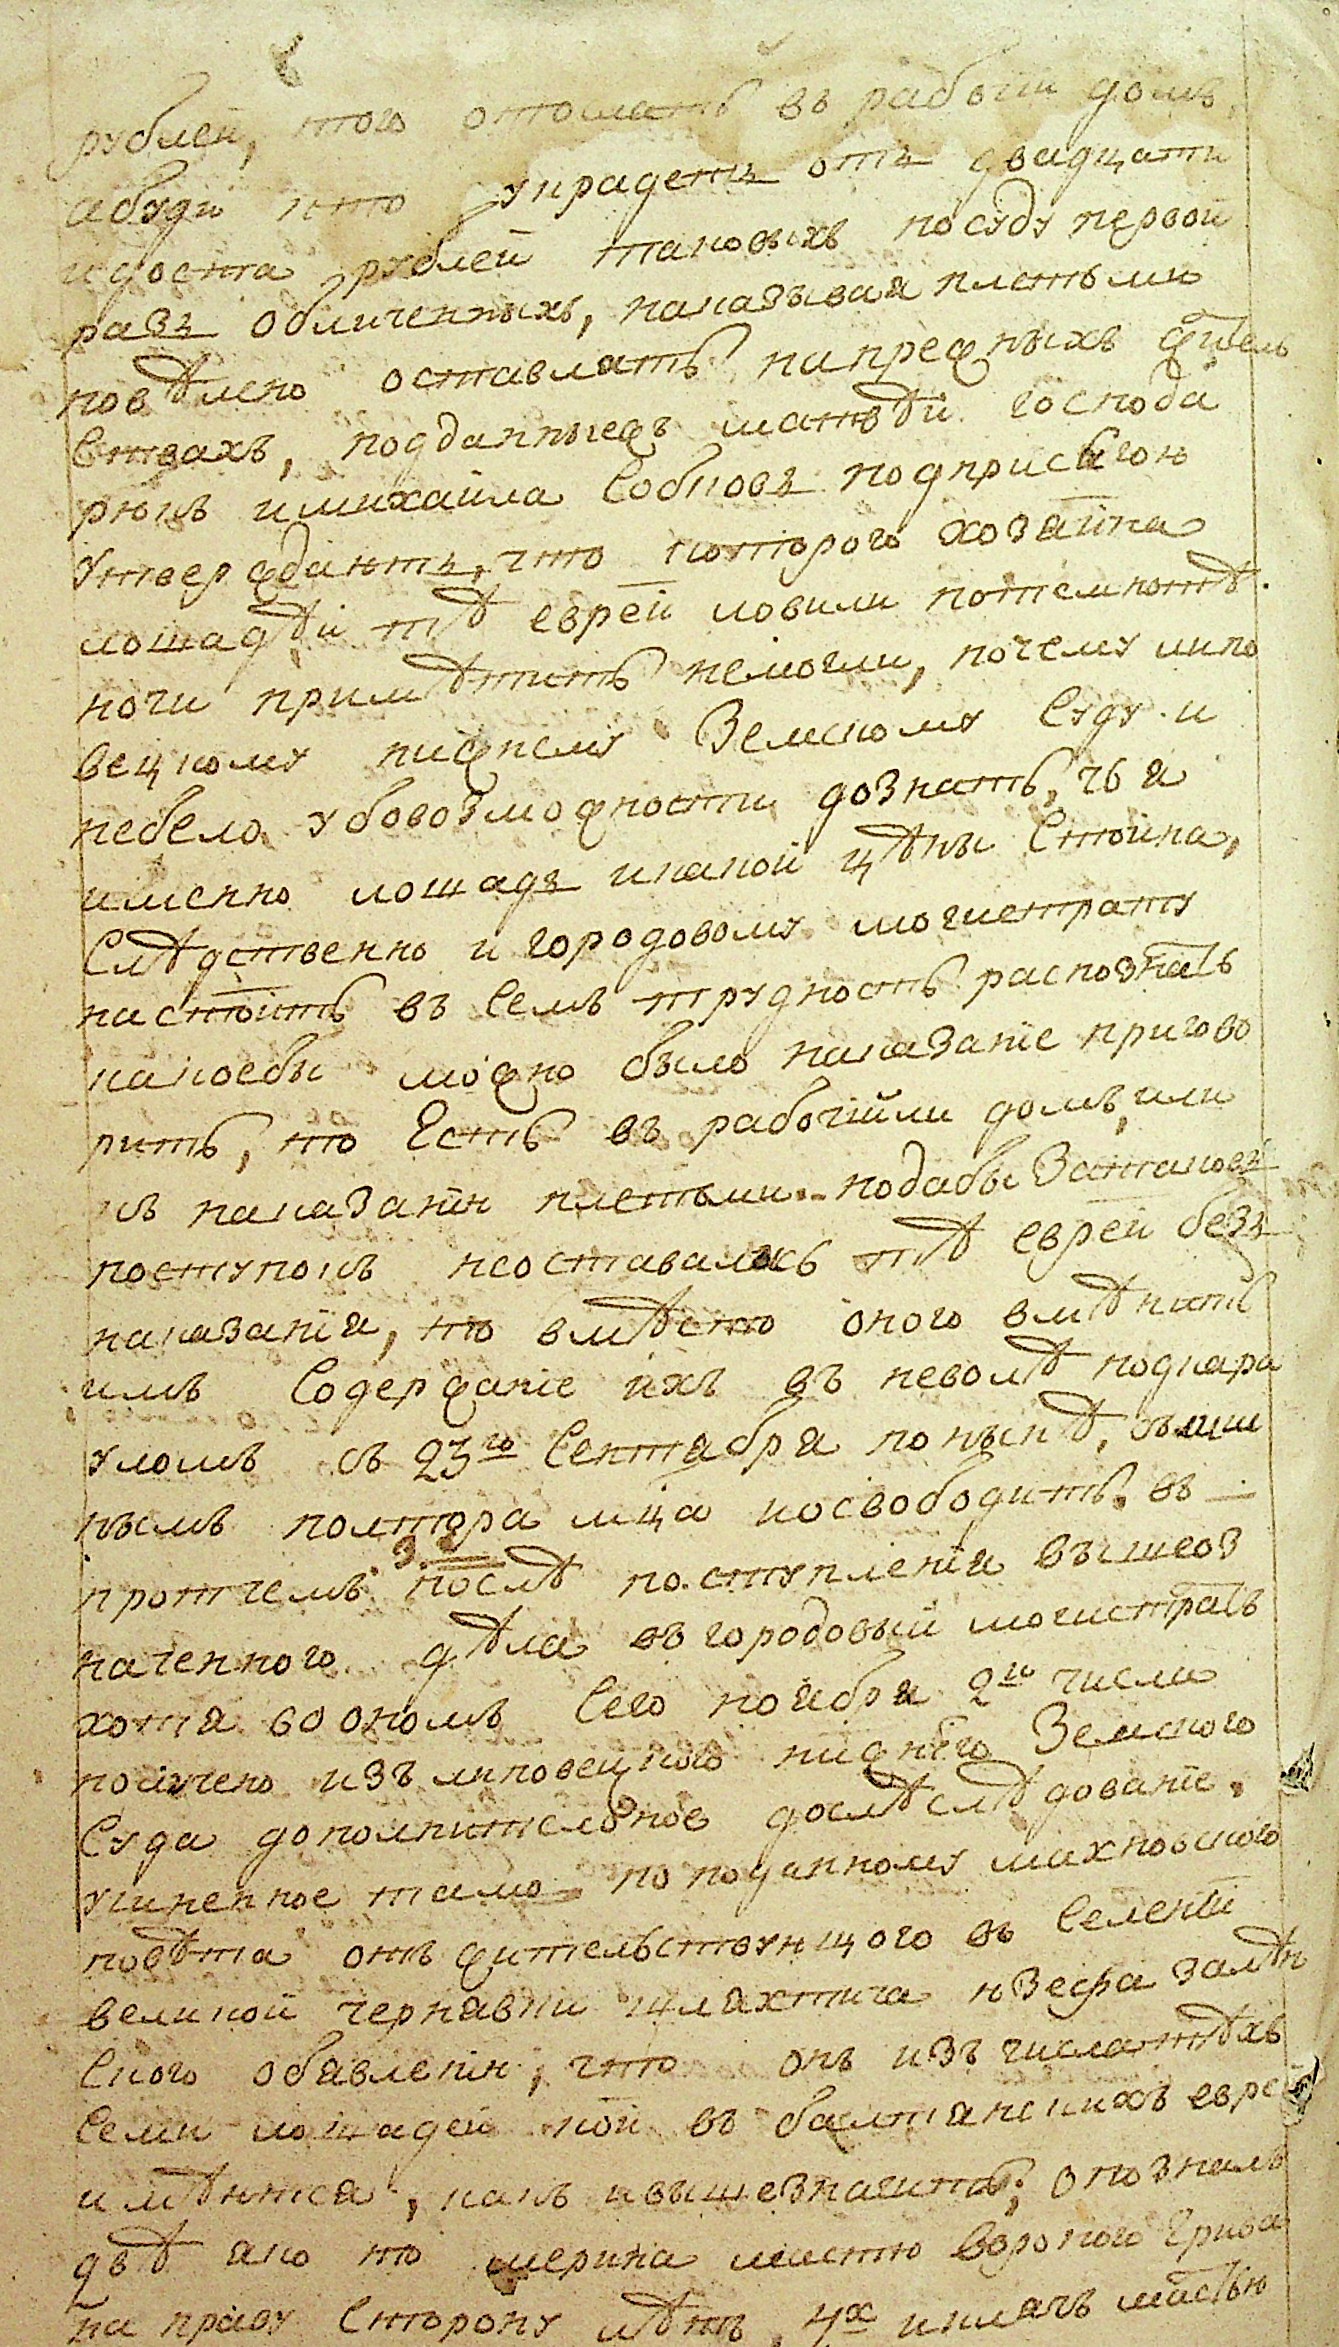 рублей, того отослать въ рабочи домъ,
абуди кто украдетъ отъ двадцати
идоста рублей таковыхъ посуду первой
разъ обличенныхъ, наказывая плетьми
повѣлено оставлять напрежныхъ жител
ствахъ, подданныежъ матвѣй господа
рюкъ имихайла Собковъ подприсягою
утверждаютъ, что которого хозяина
лошадѣй тѣ еврей ловили потемнотѣ
ночи примѣтить немогли, почему липо
вецкому нижнему Земскому Суду и
небело убовозможности дознать, чья
именно лошадъ икакой цѣны Стоила,
Слѣдственно и городовому могистрату
настоитъ въ Семъ трудность распознать
какоебы можно было наказанїе пригово
рить, то Есть въ рабочїйли домъ, или
къ наказанїю плетьми. подабы Затаковы
поступокъ неоставались тѣ еврей безъ
наказанїя, то вмѣсто оного вмѣнить
имъ Содержанїе ихъ въ неволѣ подкара
уломъ съ 23го Сентября понынѣ,
нымъ полтора мца иосвободить. въ
протчемъ послѣ поступленїя вышеоз
наченного дѣла въ городовый могистратъ
хотя воономъ Сего ноября 2го числа
получено изъ липовецкого нижнего Земского
Суда дополнителное дослѣслѣдованїе,
учиненное тамо поподанному махновского
повѣта отъ жительствующого въ Селенїи
великой чернявки шляхтича юзефа залѣн
ского обявленїю, что онъ изъ числа тѣхъ
Семи лошадей кой въ балтянскихъ евре
имѣются, какъ ивышезначитъ, опозналъ
двѣ яко то мерина мастю вороного Грива
на праву Сторону лѣтъ 4х иклячъ мастью